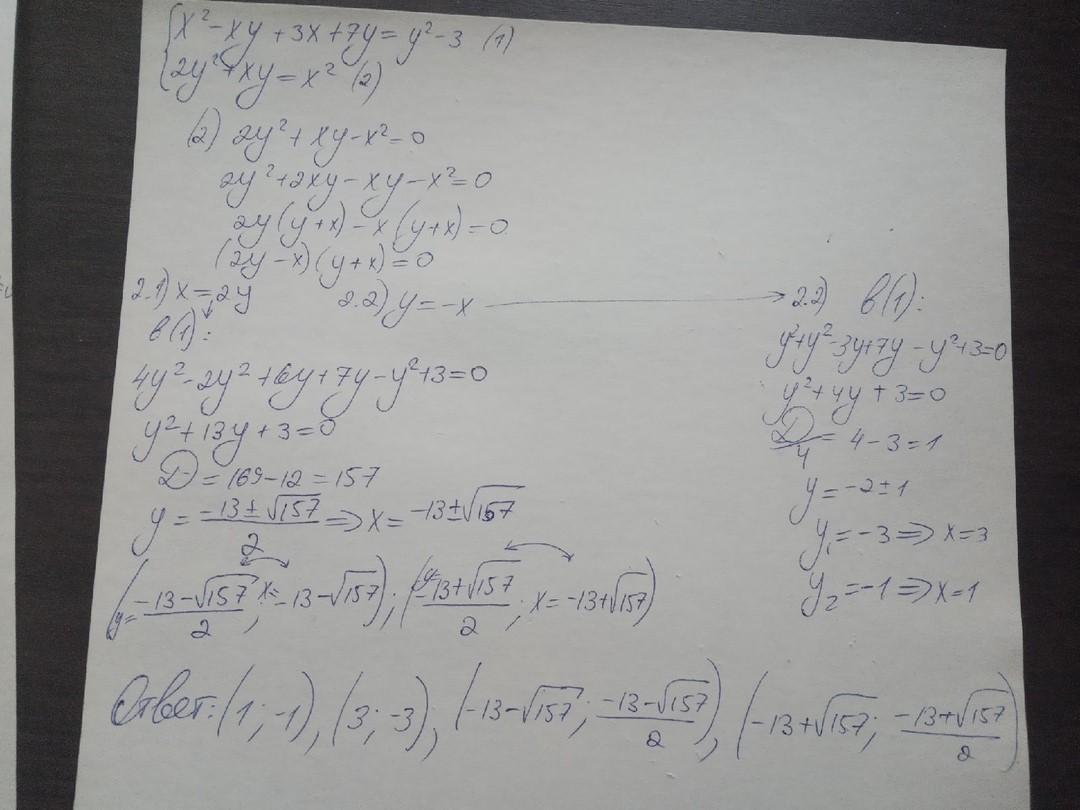 {x² - xy + 3x + 7y = y² - 3 (1)
{2y² + xy = x² (2)
(2) 2y² + xy - x² = 0
2y² + 2xy - xy - x² = 0
2y(y+x) - x(y+x) = 0
(2y - x)(y+x) = 0
2.1) x = 2y
в(1):
4y² - 2y² + 6y + 7y - y² + 3 = 0
y² + 13y + 3 = 0
D = 169 - 12 = 157
y = (-13 ± √157)/2 ⇒ x = -13 ± √157
(y = (-13 - √157)/2; x = -13 - √157); (y = (-13 + √157)/2; x = -13 + √157)
2.2) y = -x → 2.2) в(1):
y² + y² - 3y + 7y - y² + 3 = 0
y² + 4y + 3 = 0
D/4 = 4 - 3 = 1
y = -2 ± 1
y₁ = -3 ⇒ x = 3
y₂ = -1 ⇒ x = 1
Ответ: (1; -1), (3; -3), (-13 - √157; (-13 - √157)/2), (-13 + √157; (-13 + √157)/2)